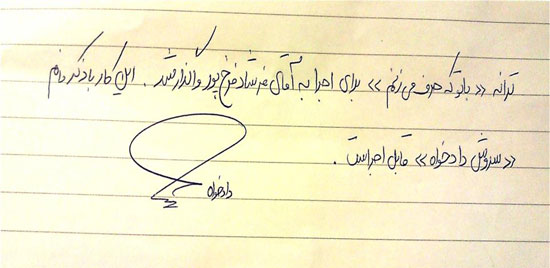 ترانه «با تو که حرف می زنم» برای اجرا به آقای فرشاد فرخ پور واگذار شد. این کار با ذکر نام
«سروش دادخواه» قابل اجراست.
دادخواه